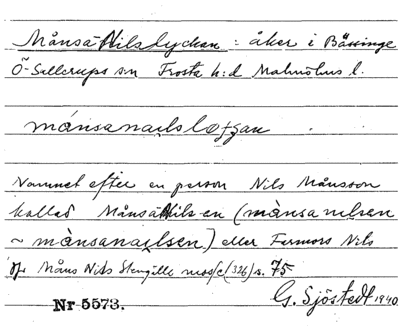 Månsa Nilslyckan : åker i Bässinge
Ö-Sallerups sn Frosta h:d Malmöhus l.
månsanailsløkan
Namnet efter en person Nils Månsson
kallad Månsa Nils-en (månsa nilsen
~ månsanailsen) eller Farmors Nils
Måns Nils s. 75
Nr 5573. G. Sjöstedt 1940